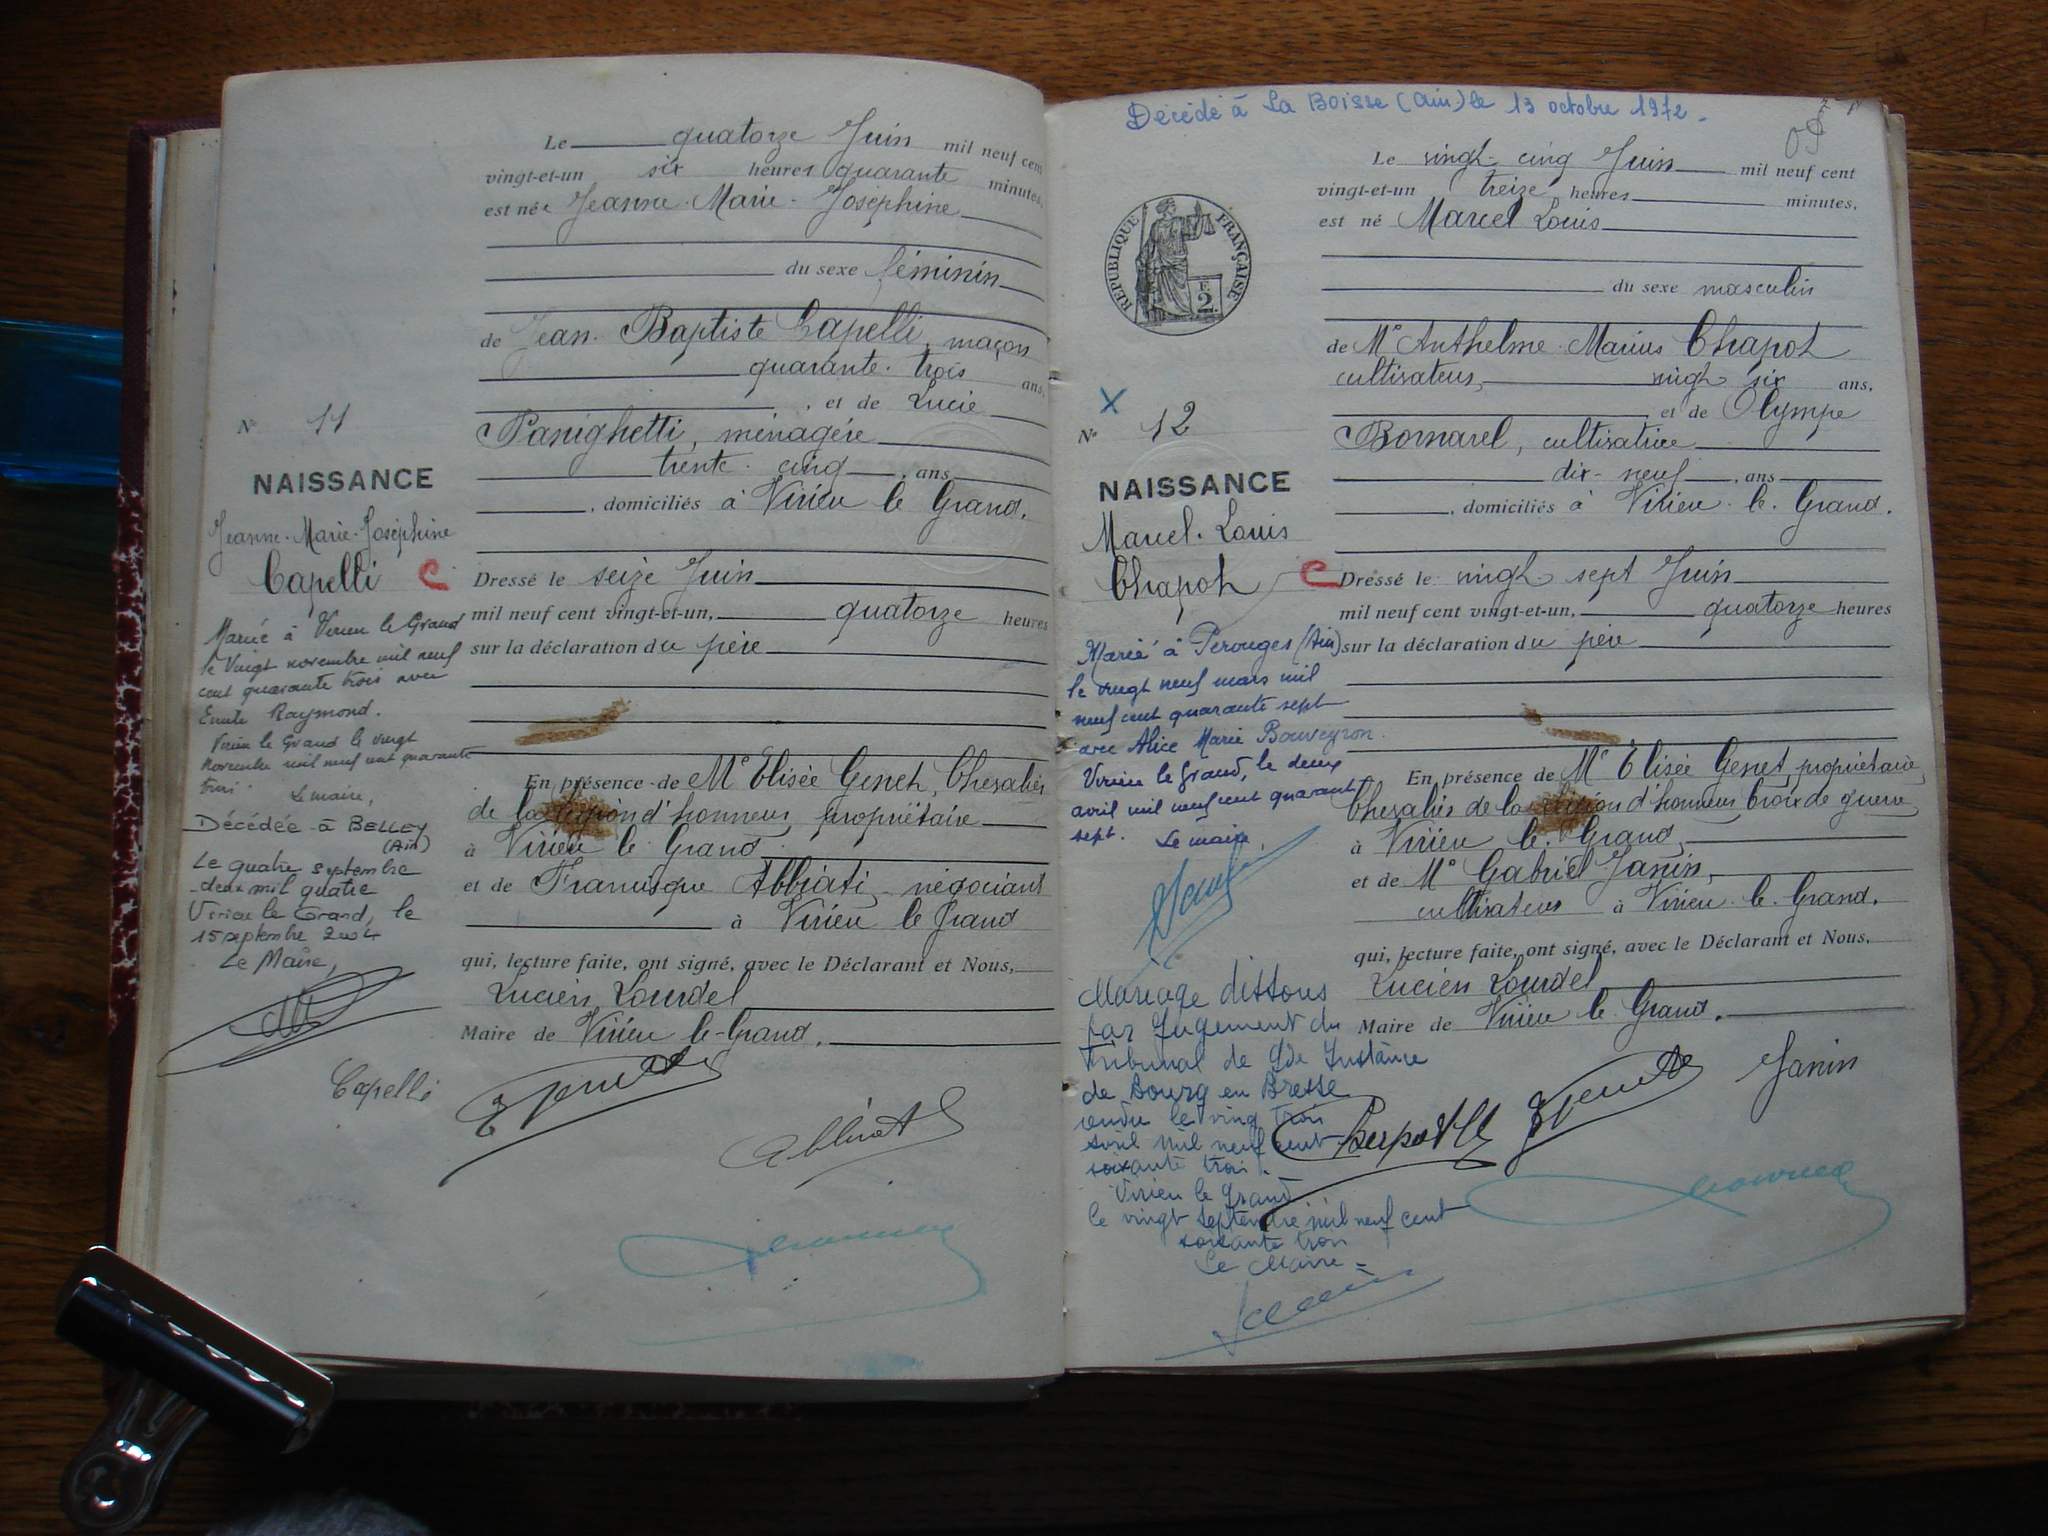 Le quatorze Juin mil neuf cent
vingt-et-un six heures quarante minutes,
est née Jeanne-Marie-Joséphine
du sexe féminin
de Jean-Baptiste Capelli, maçon
quarante-trois ans,
, et de Lucie
Panighetti, ménagère
trente-cinq, ans
, domiciliés à Virieu le Grand.
Dressé le seize Juin
mil neuf cent vingt-et-un, quatorze heures
sur la déclaration du père
En présence de Mr Elisée Genet, Chevalier
de la légion d'honneur, propriétaire
à Virieu le Grand
et de Francisque Abbiati, négociant
à Virieu le Grand
qui, lecture faite, ont signé, avec le Déclarant et Nous,
Lucien Lourdel
Maire de Virieu le-Grand.
No 11
NAISSANCE
Jeanne-Marie-Joséphine
Capelli C
Mariée à Virieu le Grand
le Vingt novembre mil neuf
cent quarante trois avec
Emile Raymond.
Virieu le Grand le vingt
novembre mil neuf cent quarante
trois. Le maire,
Décédée à BELLEY
(Ain)
Le quatre septembre
deux mil quatre
Virieu le Grand, le
15 septembre 2004
Le Maire,
Capelli
Décédé à La Boisse (Ain) le 13 octobre 1972.
RÉPUBLIQUE FRANÇAISE
2
Le vingt-cinq Juin mil neuf cent
vingt-et-un treize heures minutes,
est né Marcel Louis
du sexe masculin
de Mr Anthelme-Marius Chapot
cultivateur, vingt six ans,
et de Olympe
Bornarel, cultivatrice
dix-neuf, ans
, domiciliés à Virieu-le-Grand.
Dressé le vingt-sept Juin
mil neuf cent vingt-et-un, quatorze heures
sur la déclaration du père
En présence de Mr Elisée Genet, propriétaire,
Chevalier de la légion d'honneur Croix de guerre,
à Virieu le Grand,
et de Mr Gabriel Janin,
cultivateur à Virieu-le-Grand.
qui, lecture faite, ont signé, avec le Déclarant et Nous,
Lucien Lourdel
Maire de Virieu le Grand.
X
No 12
NAISSANCE
Marcel-Louis
Chapot C
Marié à Perouges (Ain)
le vingt neuf mars mil
neuf cent quarante sept
avec Alice Marie Bouveyron.
Virieu le Grand, le deux
avril mil neuf cent quarante
sept. Le maire,
Mariage dissous
par Jugement du
Tribunal de Gde Instance
de Bourg en Bresse
rendu le vingt trois
avril mil neuf cent
soixante trois.
Virieu le Grand
le vingt septembre mil neuf cent
soixante trois
Le Maire
Janin